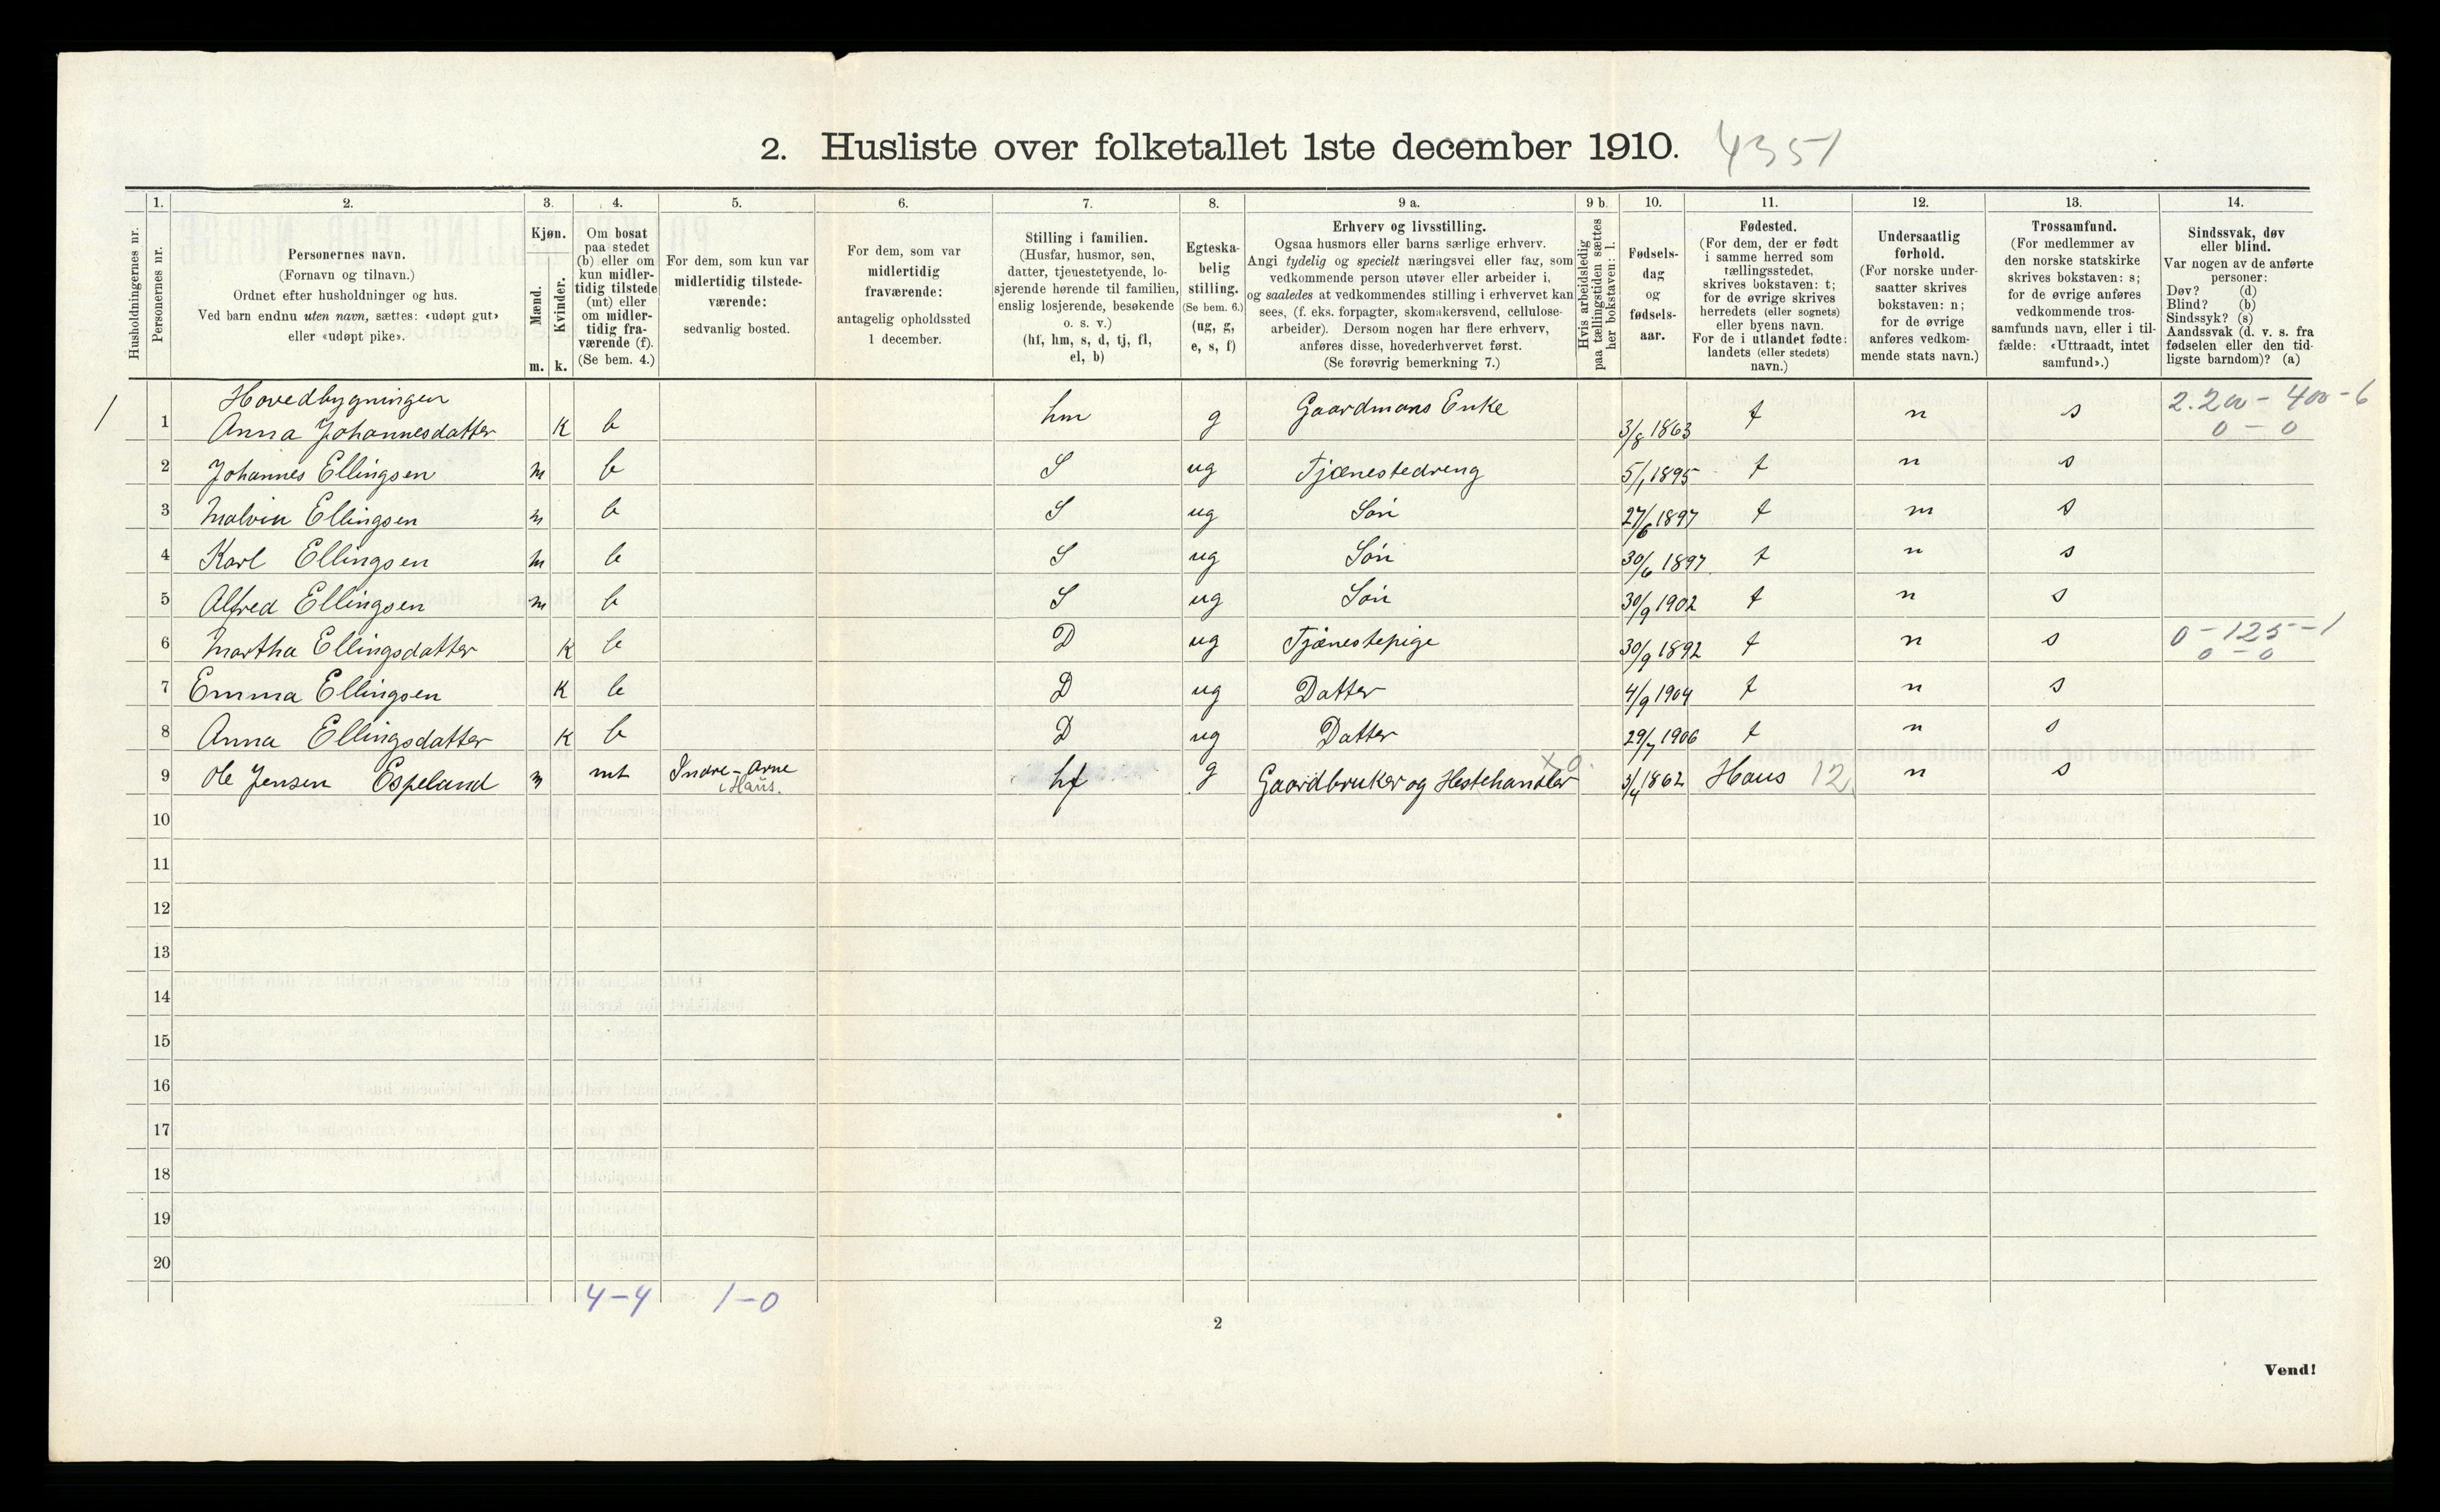 2. Husliste over folketallet 1ste december 1910. 4351
Husholdningernes nr.
1.
Personernes nr.
2.
Personernes navn.
(Fornavn og tilnavn.)
Ordnet efter husholdninger og hus.
Ved barn endnu uten navn, sættes: «udøpt gut»
eller «udøpt pike».
3.
Kjøn.
Mænd.
Kvinder.
m. k.
4.
Om bosat
paa stedet
(b) eller om
kun midler-
tidig tilstede
(mt) eller
om midler-
tidig fra-
værende (f).
(Se bem. 4.)
5.
For dem, som kun var
midlertidig tilstede-
værende:
sedvanlig bosted.
6.
For dem, som var
midlertidig
fraværende:
antagelig opholdssted
1 december.
7.
Stilling i familien.
(Husfar, husmor, søn,
datter, tjenestetyende, lo-
sjerende hørende til familien,
enslig losjerende, besøkende
o. s. v.)
(hf, hm, s, d, tj, fl,
el, b)
8.
Egteska-
belig
stilling.
(Se bem. 6.)
(ug, g,
e, s, f)
9 a.
Erhverv og livsstilling.
Ogsaa husmors eller barns særlige erhverv.
Angi tydelig og specielt næringsvei eller fag, som
vedkommende person utøver eller arbeider i,
og saaledes at vedkommendes stilling i erhvervet kan
sees, (f. eks. forpagter, skomakersvend, cellulose-
arbeider). Dersom nogen har flere erhverv,
anføres disse, hovederhvervet først.
(Se forøvrig bemerkning 7.)
9 b.
Hvis arbeidsledig
paa tællingstiden sættes
her bokstaven: l.
10.
Fødsels-
dag
og
fødsels-
aar.
11.
Fødested.
(For dem, der er født
i samme herred som
tællingsstedet,
skrives bokstaven: t;
for de øvrige skrives
herredets (eller sognets)
eller byens navn.
For de i utlandet fødte:
landets (eller stedets)
navn.)
12.
Undersaatlig
forhold.
(For norske under-
saatter skrives
bokstaven: n;
for de øvrige
anføres vedkom-
mende stats navn.)
13.
Trossamfund.
(For medlemmer av
den norske statskirke
skrives bokstaven: s;
for de øvrige anføres
vedkommende tros-
samfunds navn, eller i til-
fælde: «Uttraadt, intet
samfund».)
14.
Sindssvak, døv
eller blind.
Var nogen av de anførte
personer:
Døv? (d)
Blind? (b)
Sindssyk? (s)
Aandssvak (d. v. s. fra
fødselen eller den tid-
ligste barndom)? (a)
Hovedbygningen
1 1 Anna Johannesdatter K b hm g Gaardmans Enke 3/8 1863 t n s 2.200 - 400 - 6
0 - 0
2 Johannes Ellingsen m b S ug Tjænestedreng 5/1 1895 t n s
3 Malvin Ellingsen m b S ug Søn 27/6 1897 t n s
4 Karl Ellingsen m b S ug Søn 30/6 1897 t n s
5 Alfred Ellingsen m b S ug Søn 30/9 1902 t n s
6 Martha Ellingsdatter K b D ug Tjænestepige 30/9 1892 t n s 0 - 125 - 1
0 - 0
7 Emma Ellingsen K b D ug Datter 4/9 1904 t n s
8 Anna Ellingsdatter K b D ug Datter 29/7 1906 t n s
9 Ole Jensen Espeland m mt Indre-Arne hf g Gaardbruker og Hestehandler 3/4 1862 Haus 12 n s
i Haus.
10
11
12
13
14
15
16
17
18
19
20
4-4 1-0
2
Vend!